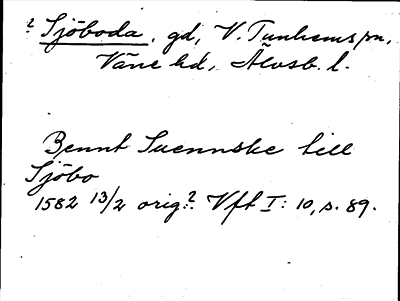 ? Sjöboda, gd, V. Tunhems sn,
Väne hd, Älvsb. l.
Bennt Suennske till
Sjöbo
1582 13/2 orig.? Vft I: 10, s. 89.